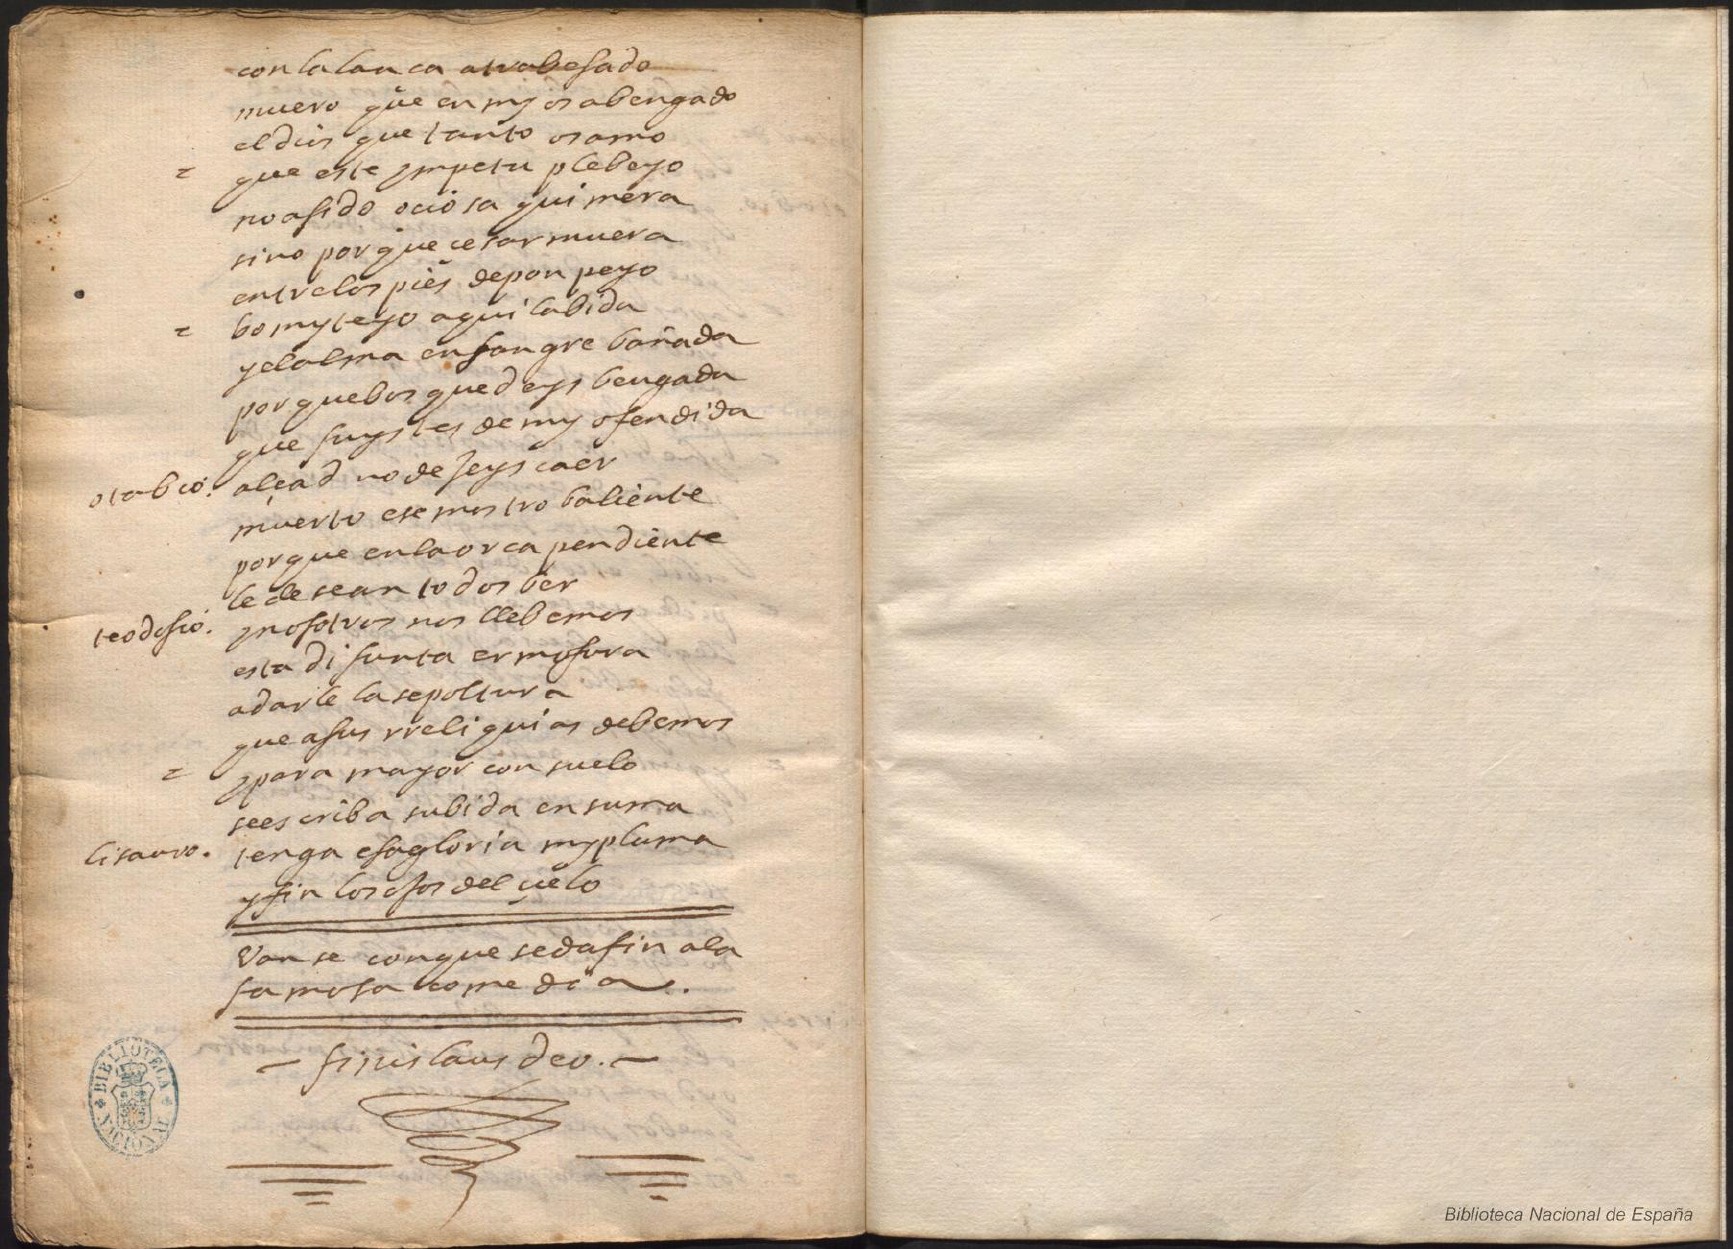 con la lança atrabesado
muero q̃ue en my os a bengado
el dios que tanto os amo
= que este ympetu plebeyo
no a sido ociosa quimera
sino porq̃ue cesar muera
entre los pies de pon peyo
= bomyte yo aqui la bida
y el alma en sangre bañada
por que bos quedeys bengada
que fuystes de my ofendida
otabio. alead no deseys caer
muerto ese mostro baliente
porque en la orca pendiente
le desean todos ber
teodosio. y nosotros nos llebemos
esta difunta ermosura
a darle la sepoltura
que a sus rreliquias debemos
= y para mayor consuelo
se escriba su bida en suma
lisauro. tenga esa gloria my pluma
y fin los osos del çielo
Van se con que se da fin a la
famosa comedia.
— finis laus deo. —
BIBLIOTECA NACIONAL
Biblioteca Nacional de España